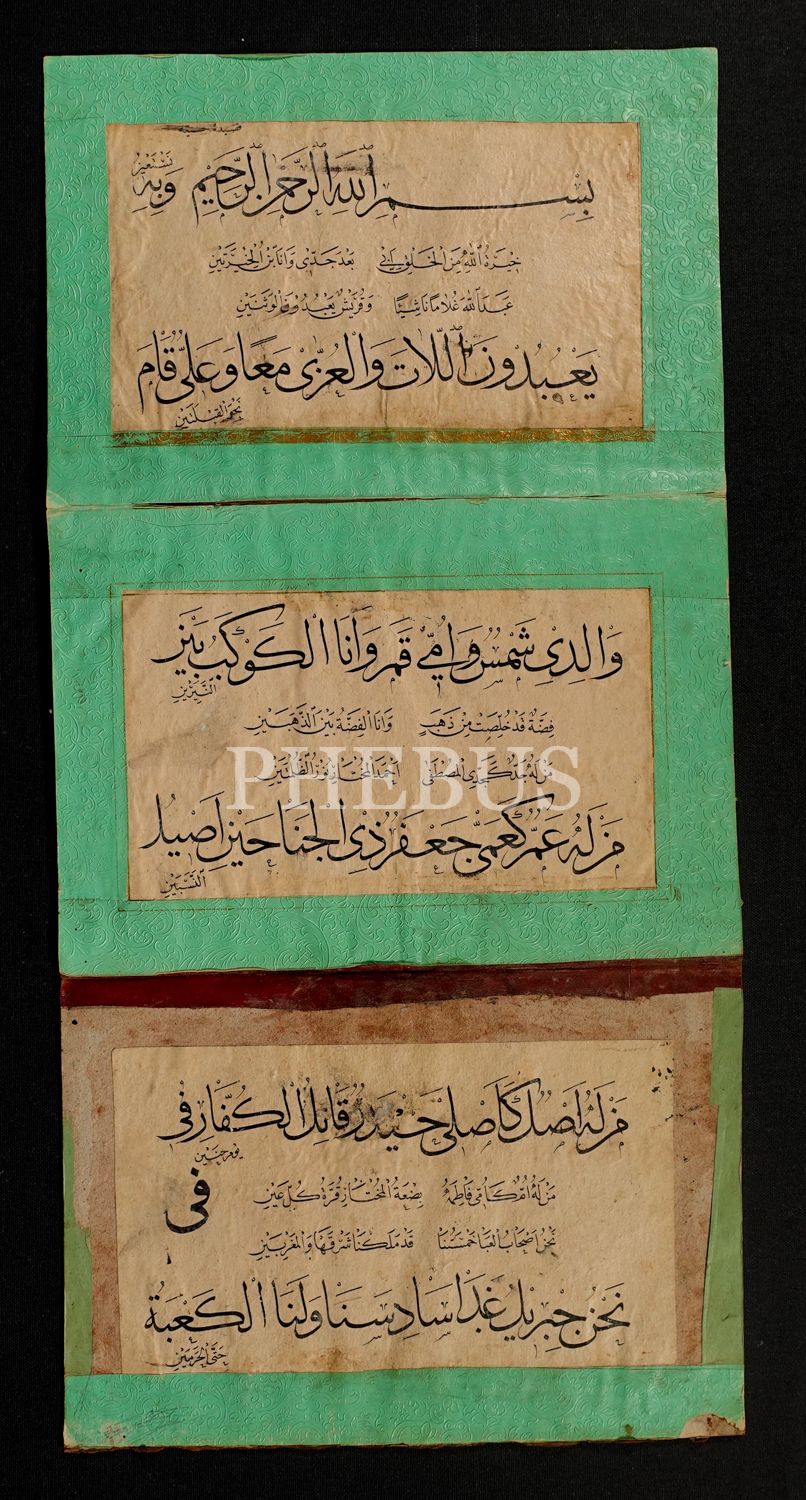 بِسْمِ اللهِ الرَّحْمٰنِ الرَّحِيمِ وَبِهِ نَسْتَعِينُ
خِيَرَةُ اللهِ مِنَ الْخَلْقِ أَبِي بَعْدَ جَدِّي وَأَنَا بْنُ الْخِيَرَتَيْنِ
عَبَدَ اللهَ غُلَامًا نَاشِيًا وَقُرَيْشٌ يَعْبُدُونَ الْوَثَنَيْنِ
يَعْبُدُونَ اللَّاتَ وَالْعُزَّى مَعًا وَعَلِيٌّ قَامَ
نَحْوَ الْقِبْلَتَيْنِ
وَالِدِي شَمْسٌ وَأُمِّي قَمَرٌ وَأَنَا الْكَوْكَبُ بَيْنَ
النَّيِّرَيْنِ
فِضَّةٌ قَدْ خُلِصَتْ مِنْ ذَهَبٍ وَأَنَا الْفِضَّةُ بَيْنَ الذَّهَبَيْنِ
مَنْ لَهُ جَدٌّ كَجَدِّي الْمُصْطَفَى أَحْمَدَ الْمُخْتَارِ نُورِ الظُّلْمَتَيْنِ
PHEBUS
مَنْ لَهُ عَمٌّ كَعَمِّي جَعْفَرٍ ذِي الْجَنَاحَيْنِ أَصِيلِ
النَّسَبَيْنِ
مَنْ لَهُ أَصْلٌ كَأَصْلِي حَيْدَرٍ قَاتِلِ الْكُفَّارِ فِي
يَوْمِ حُنَيْنِ
فِي
مَنْ لَهُ أُمٌّ كَأُمِّي فَاطِمَةَ بِضْعَةِ الْمُخْتَارِ قُرَّةِ كُلِّ عَيْنِ
نَحْنُ أَصْحَابُ الْعَبَا خَمْسَتُنَا قَدْ مَلَكْنَا شَرْقَهَا وَالْمَغْرِبَيْنِ
نَحْنُ جِبْرِيلُ غَدَا سَادِسَنَا وَلَنَا الْكَعْبَةُ
حَتَّى الْحَرَمَيْنِ